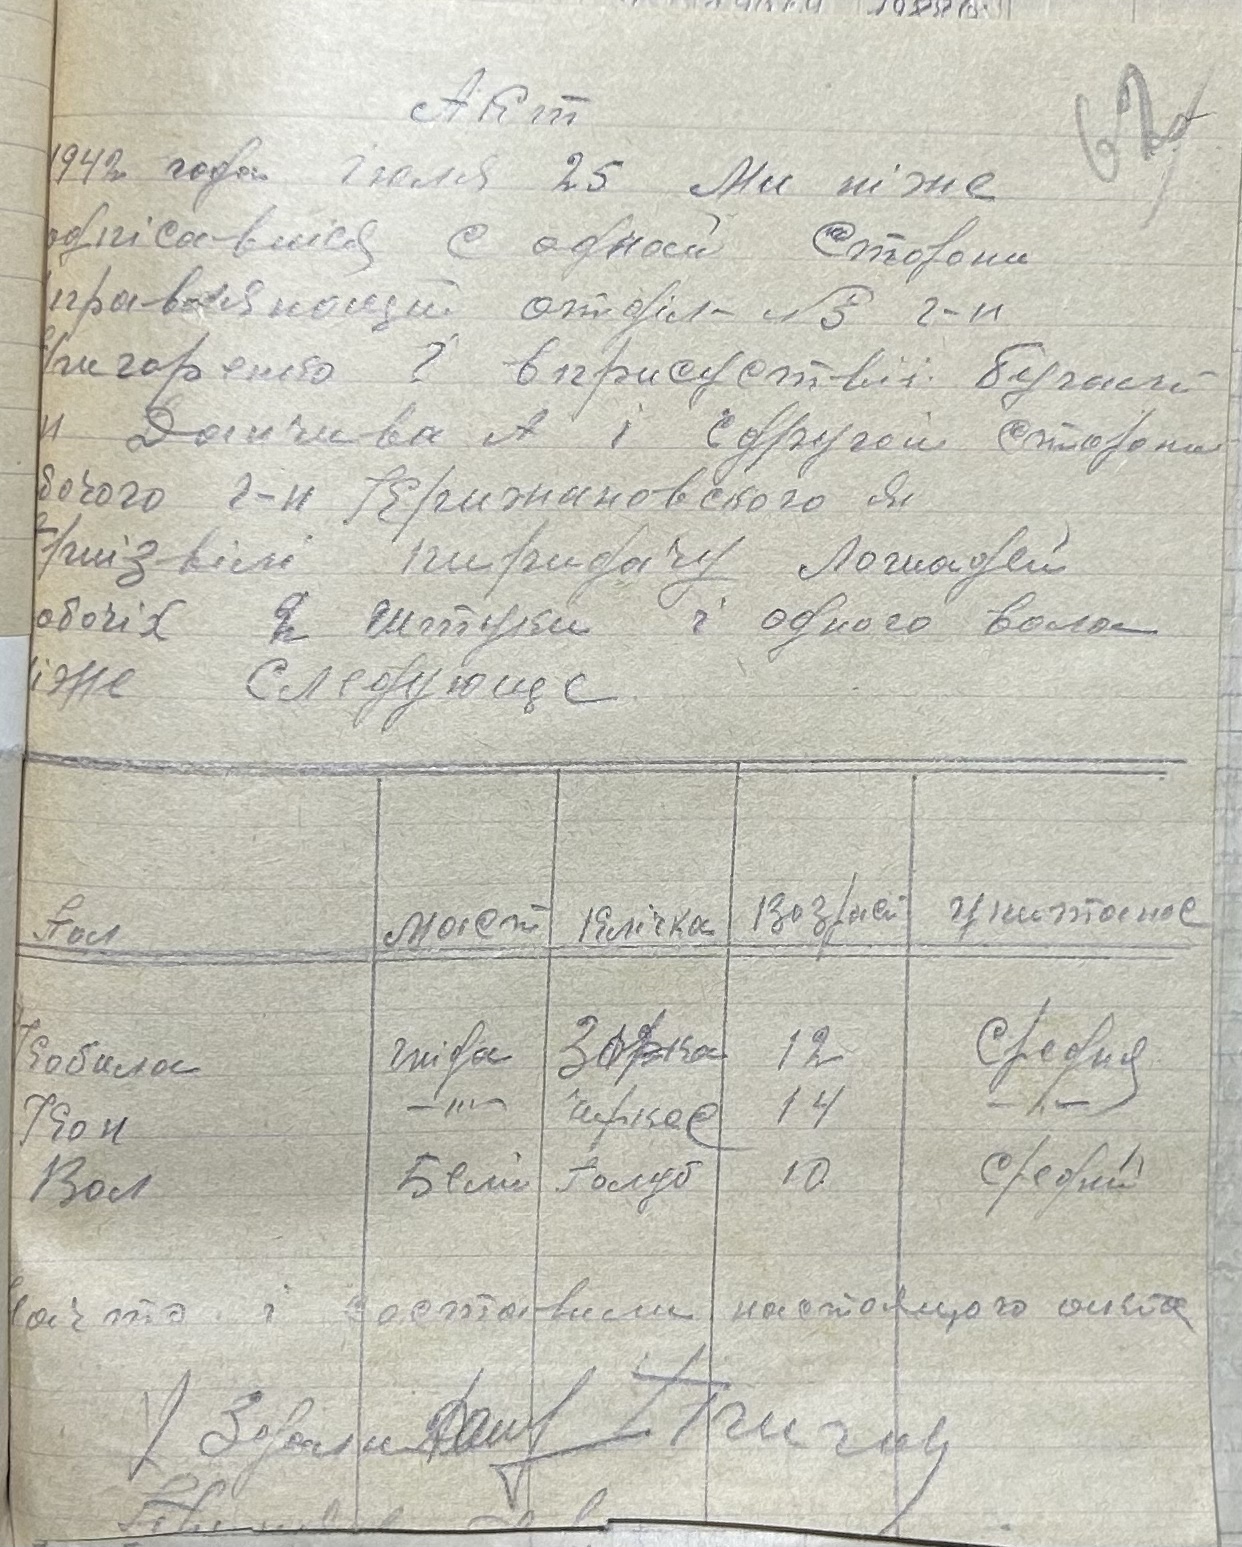 Акт
62
1942 года іюля 25 Ми ніже
одпісавшіся с одной Сторони
правляющій отділ №3 г-н
Григоренко І вприсуствіі
н А і сдругой Сторони
бочого г-н Крижановского Я
Приізвілі пиридачу Лошадей
обочіх 2 штуки і одного вола
іже Следующе
Пол Маст Клічка Возраст Упитанос
Кобила гніда Зорка 12 Средня
Кон —"— Чиркас 14 —"—
Вол Белій Голуб 10 Средній
начто і составили настоящого акта
Здали